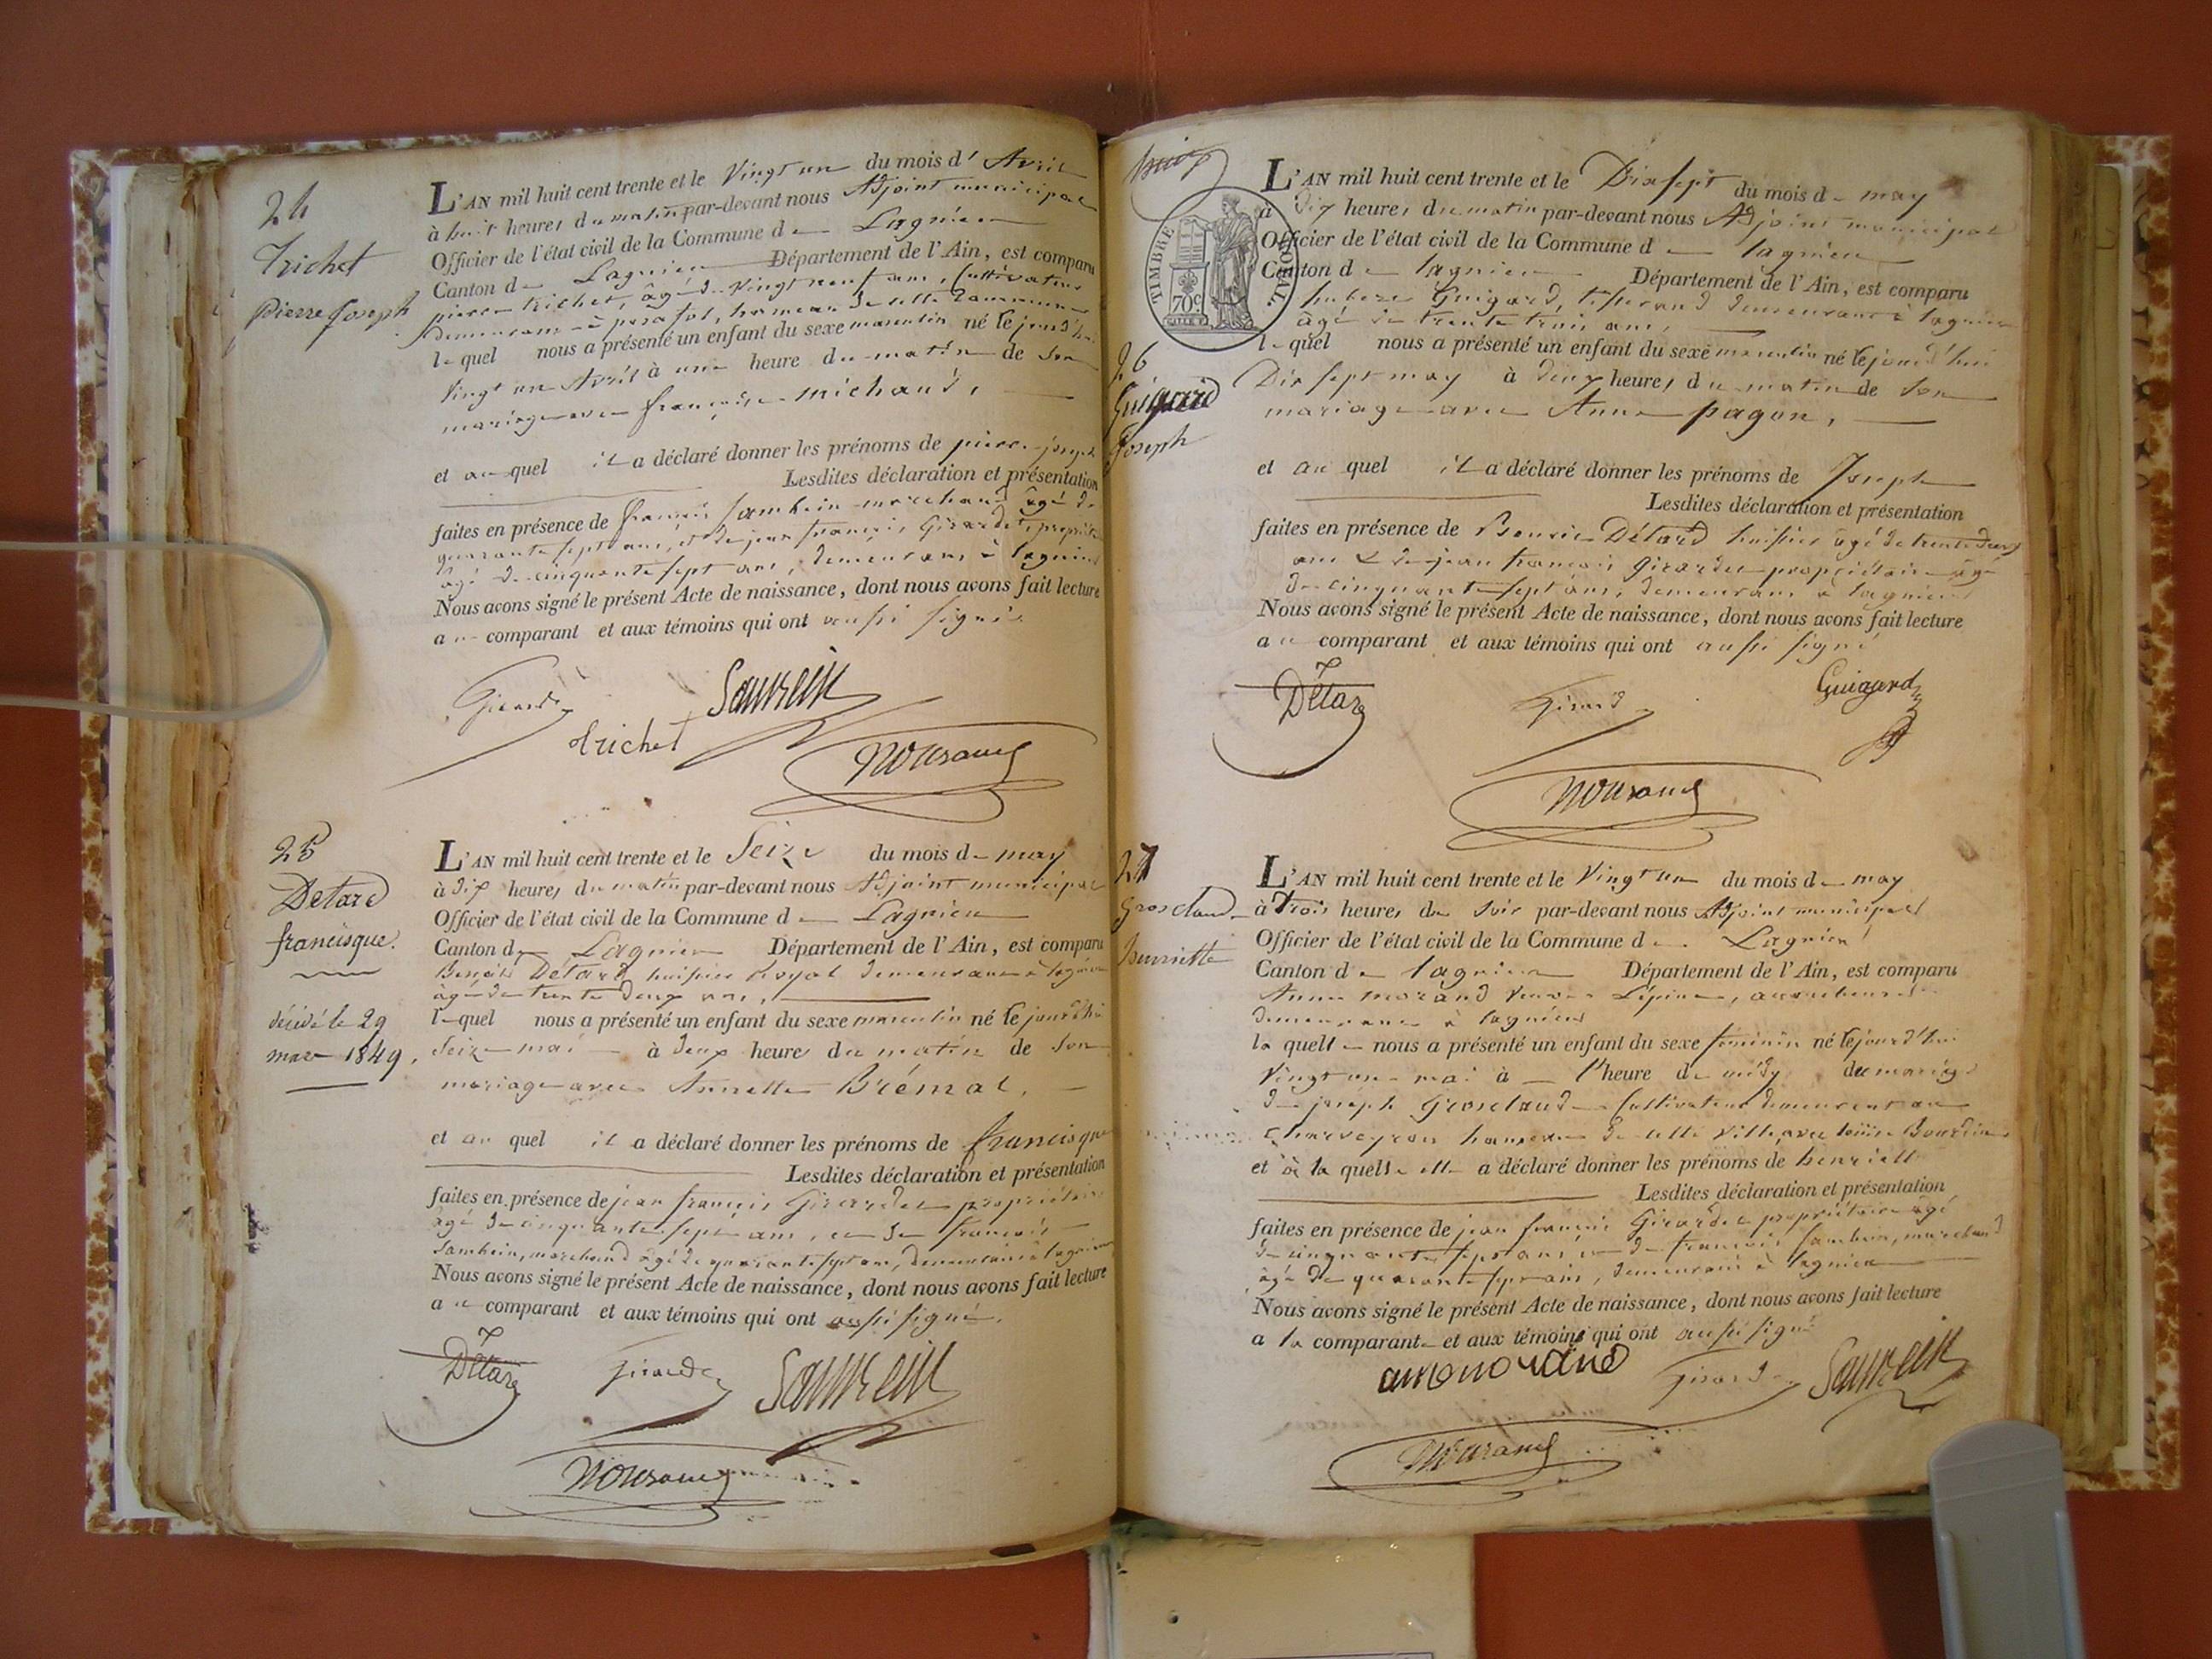 24
Trichet
Pierre Joseph
L'AN mil huit cent trente et le Vingt un du mois d' Avril
à huit heures du matin par-devant nous Adjoint municipal
Officier de l'état civil de la Commune d Lagnieu
Canton de Lagnieu Département de l'Ain, est comparu
pierre trichet, âgé de Vingt neuf ans, Cultivateur
demeurant à posafol, hameau de cette Commune
lequel nous a présenté un enfant du sexe masculin né le jourd'hui
Vingt un Avril à une heure du matin de son
mariage avec françoise michaud,
et au quel il a déclaré donner les prénoms de pierre joseph
Lesdites déclaration et présentation
faites en présence de françois marchand âgé de
quarante sept ans, et de jean françois Girardet, propriétaire
âgé de cinquante sept ans, demeurans à lagnieu
Nous avons signé le présent Acte de naissance, dont nous avons fait lecture
au comparant et aux témoins qui ont aussi signé
Girardet
trichet
25
Detard
francisque.
décédé le 29
mars 1849.
L'AN mil huit cent trente et le Seize du mois de may
à dix heures du matin par-devant nous Adjoint municipal
Officier de l'état civil de la Commune d Lagnieu
Canton de Lagnieu Département de l'Ain, est comparu
Benoit Détard huissier Royal demeurant à lagnieu
âgé de trente deux ans,
lequel nous a présenté un enfant du sexe masculin né le jourd'hui
Seize mai à deux heures du matin de son
mariage avec Annette Brémal,
et au quel il a déclaré donner les prénoms de francisque
Lesdites déclaration et présentation
faites en présence de jean françois Girardet propriétaire
âgé de cinquante sept ans, et de françois
marchand âgé de quarante sept ans, demeurans à lagnieu
Nous avons signé le présent Acte de naissance, dont nous avons fait lecture
au comparant et aux témoins qui ont aussi signé.
Détard
Girardet
TIMBRE ROYAL.
70c.
26
Guigard
Joseph
L'AN mil huit cent trente et le Dix sept du mois de may
à dix heures du matin par-devant nous Adjoint municipal
Officier de l'état civil de la Commune d lagnieu
Canton de lagnieu Département de l'Ain, est comparu
Guigard, tisserand demeurant à lagnieu
âgé de trente trois ans,
lequel nous a présenté un enfant du sexe masculin né le jourd'hui
Dix sept may à deux heures du matin de son
mariage avec Anne pagon,
et au quel il a déclaré donner les prénoms de Joseph
Lesdites déclaration et présentation
faites en présence de Détard huissier âgé de trente deux
ans & de jean francois Girardet propriétaire âgé
de cinquante sept ans, demeurans à lagnieu
Nous avons signé le présent Acte de naissance, dont nous avons fait lecture
au comparant et aux témoins qui ont aussi signé
Détard
Girard
Guigard
27
Grosclaude
henriette
L'AN mil huit cent trente et le Vingt un du mois de may
à trois heures du soir par-devant nous Adjoint municipal
Officier de l'état civil de la Commune d Lagnieu
Canton de lagnieu Département de l'Ain, est comparu
Anne morand veuve Lépine, accoucheuse
demeurant à lagnieu
la quelle nous a présenté un enfant du sexe féminin né le jourd'hui
Vingt un mai à l'heure de midy du mariage
de joseph Grosclaude Cultivateur demeurant au
charveyron hameau de cette ville avec louise Bourdin
et à la quelle elle a déclaré donner les prénoms de henriette
Lesdites déclaration et présentation
faites en présence de jean françois Girardet propriétaire âgé
de cinquante sept ans et de francois marchand
âgé de quarante sept ans, demeurans à lagnieu
Nous avons signé le présent Acte de naissance, dont nous avons fait lecture
a la comparante et aux témoins qui ont aussi signé
Girard